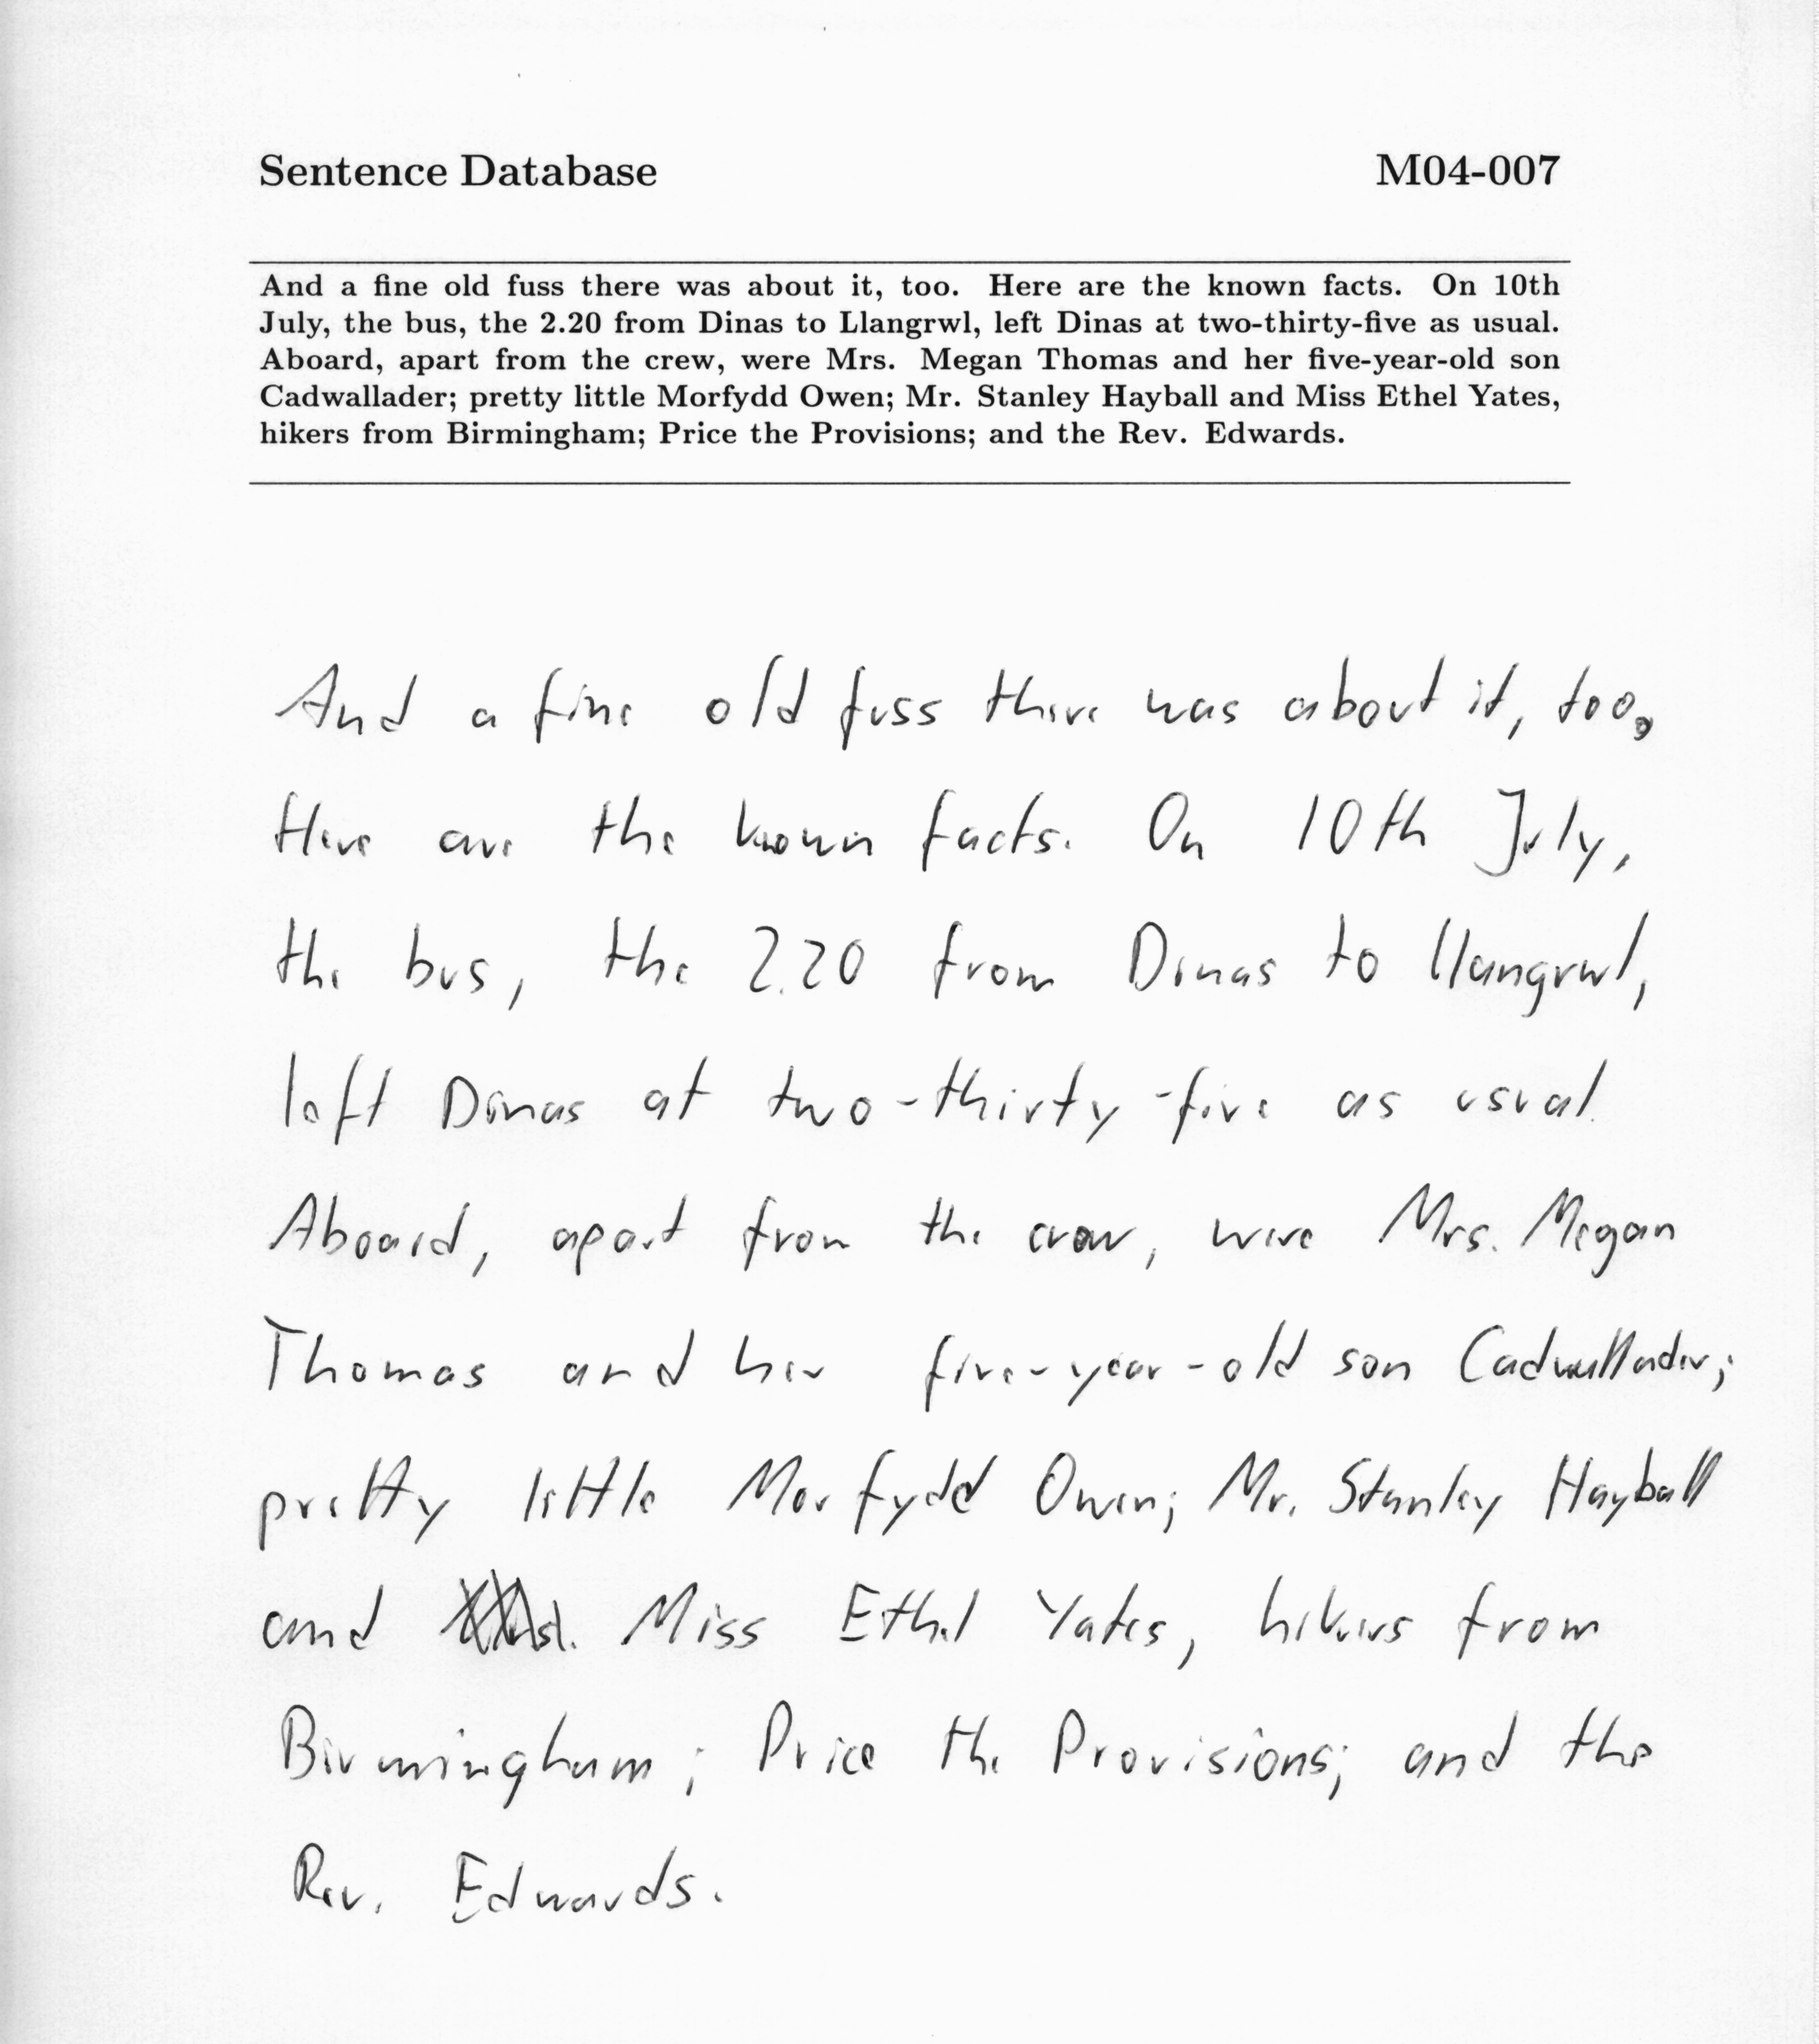 Sentence Database M04-007
And a fine old fuss there was about it, too. Here are the known facts. On 10th
July, the bus, the 2.20 from Dinas to Llangrwl, left Dinas at two-thirty-five as usual.
Aboard, apart from the crew, were Mrs. Megan Thomas and her five-year-old son
Cadwallader; pretty little Morfydd Owen; Mr. Stanley Hayball and Miss Ethel Yates,
hikers from Birmingham; Price the Provisions; and the Rev. Edwards.
And a fine old fuss there was about it, too.
Here are the known facts. On 10th July,
the bus, the 2.20 from Dinas to Llangrwl,
left Dinas at two-thirty-five as usual.
Aboard, apart from the crew, were Mrs. Megan
Thomas and her five-year-old son Cadwallader;
pretty little Morfydd Owen; Mr. Stanley Hayball
and Miss Ethel Yates, hikers from
Birmingham; Price the Provisions; and the
Rev. Edwards.